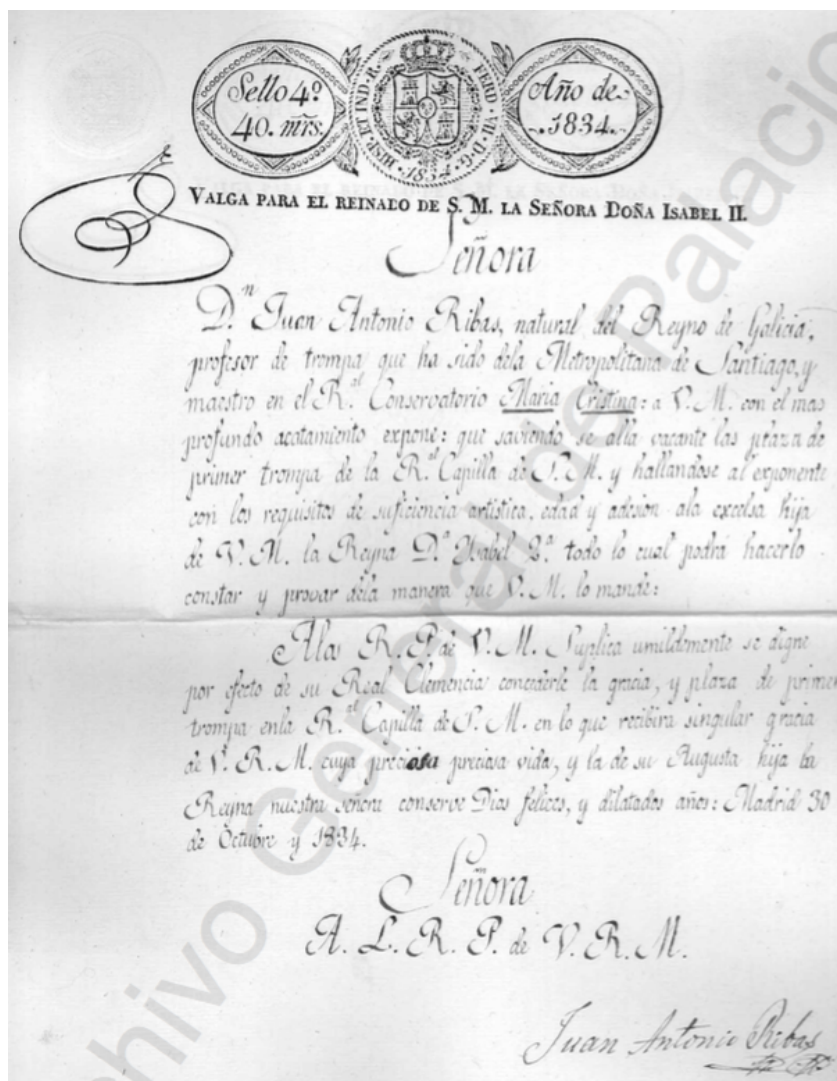 Sello 4º
40. mrs.
HISP. ET IND. R.
FERD. VII. D. G.
1834
Año de
1834.
VALGA PARA EL REINADO DE S. M. LA SEÑORA DOÑA ISABEL II.
Señora
D.n Juan Antonio Ribas, natural del Reyno de Galicia,
profesor de trompa que ha sido dela Metropolitana de Santiago, y
maestro en el R.al Conservatorio Maria Cristina: a V. M. con el mas
profundo acatamiento expone: que saviendo se alla vacante las plaza de
primer trompa de la R.al Capilla de S. M. y hallandose al exponente
con los requisitos de suficiencia artistica, edad y adesion ala excelsa hija
de V. M. la Reyna D.a Ysabel 2.a todo lo cual podrá hacerlo
constar y provar dela manera que V. M. lo mande:
Alos R. P. de V. M. Suplica umildemente se digne
por efecto de su Real Clemencia concederle la gracia, y plaza de primer
trompa enla R.al Capilla de S. M. en lo que recibira singular gracia
de V. R. M. cuya preciosa preciosa vida, y la de su Augusta hija la
Reyna nuestra señora conserve Dios felices, y dilatados años: Madrid 30
de Octubre y 1834.
Señora
A. L. R. P. de V. R. M.
Juan Antonio Ribas
Archivo General de Palacio